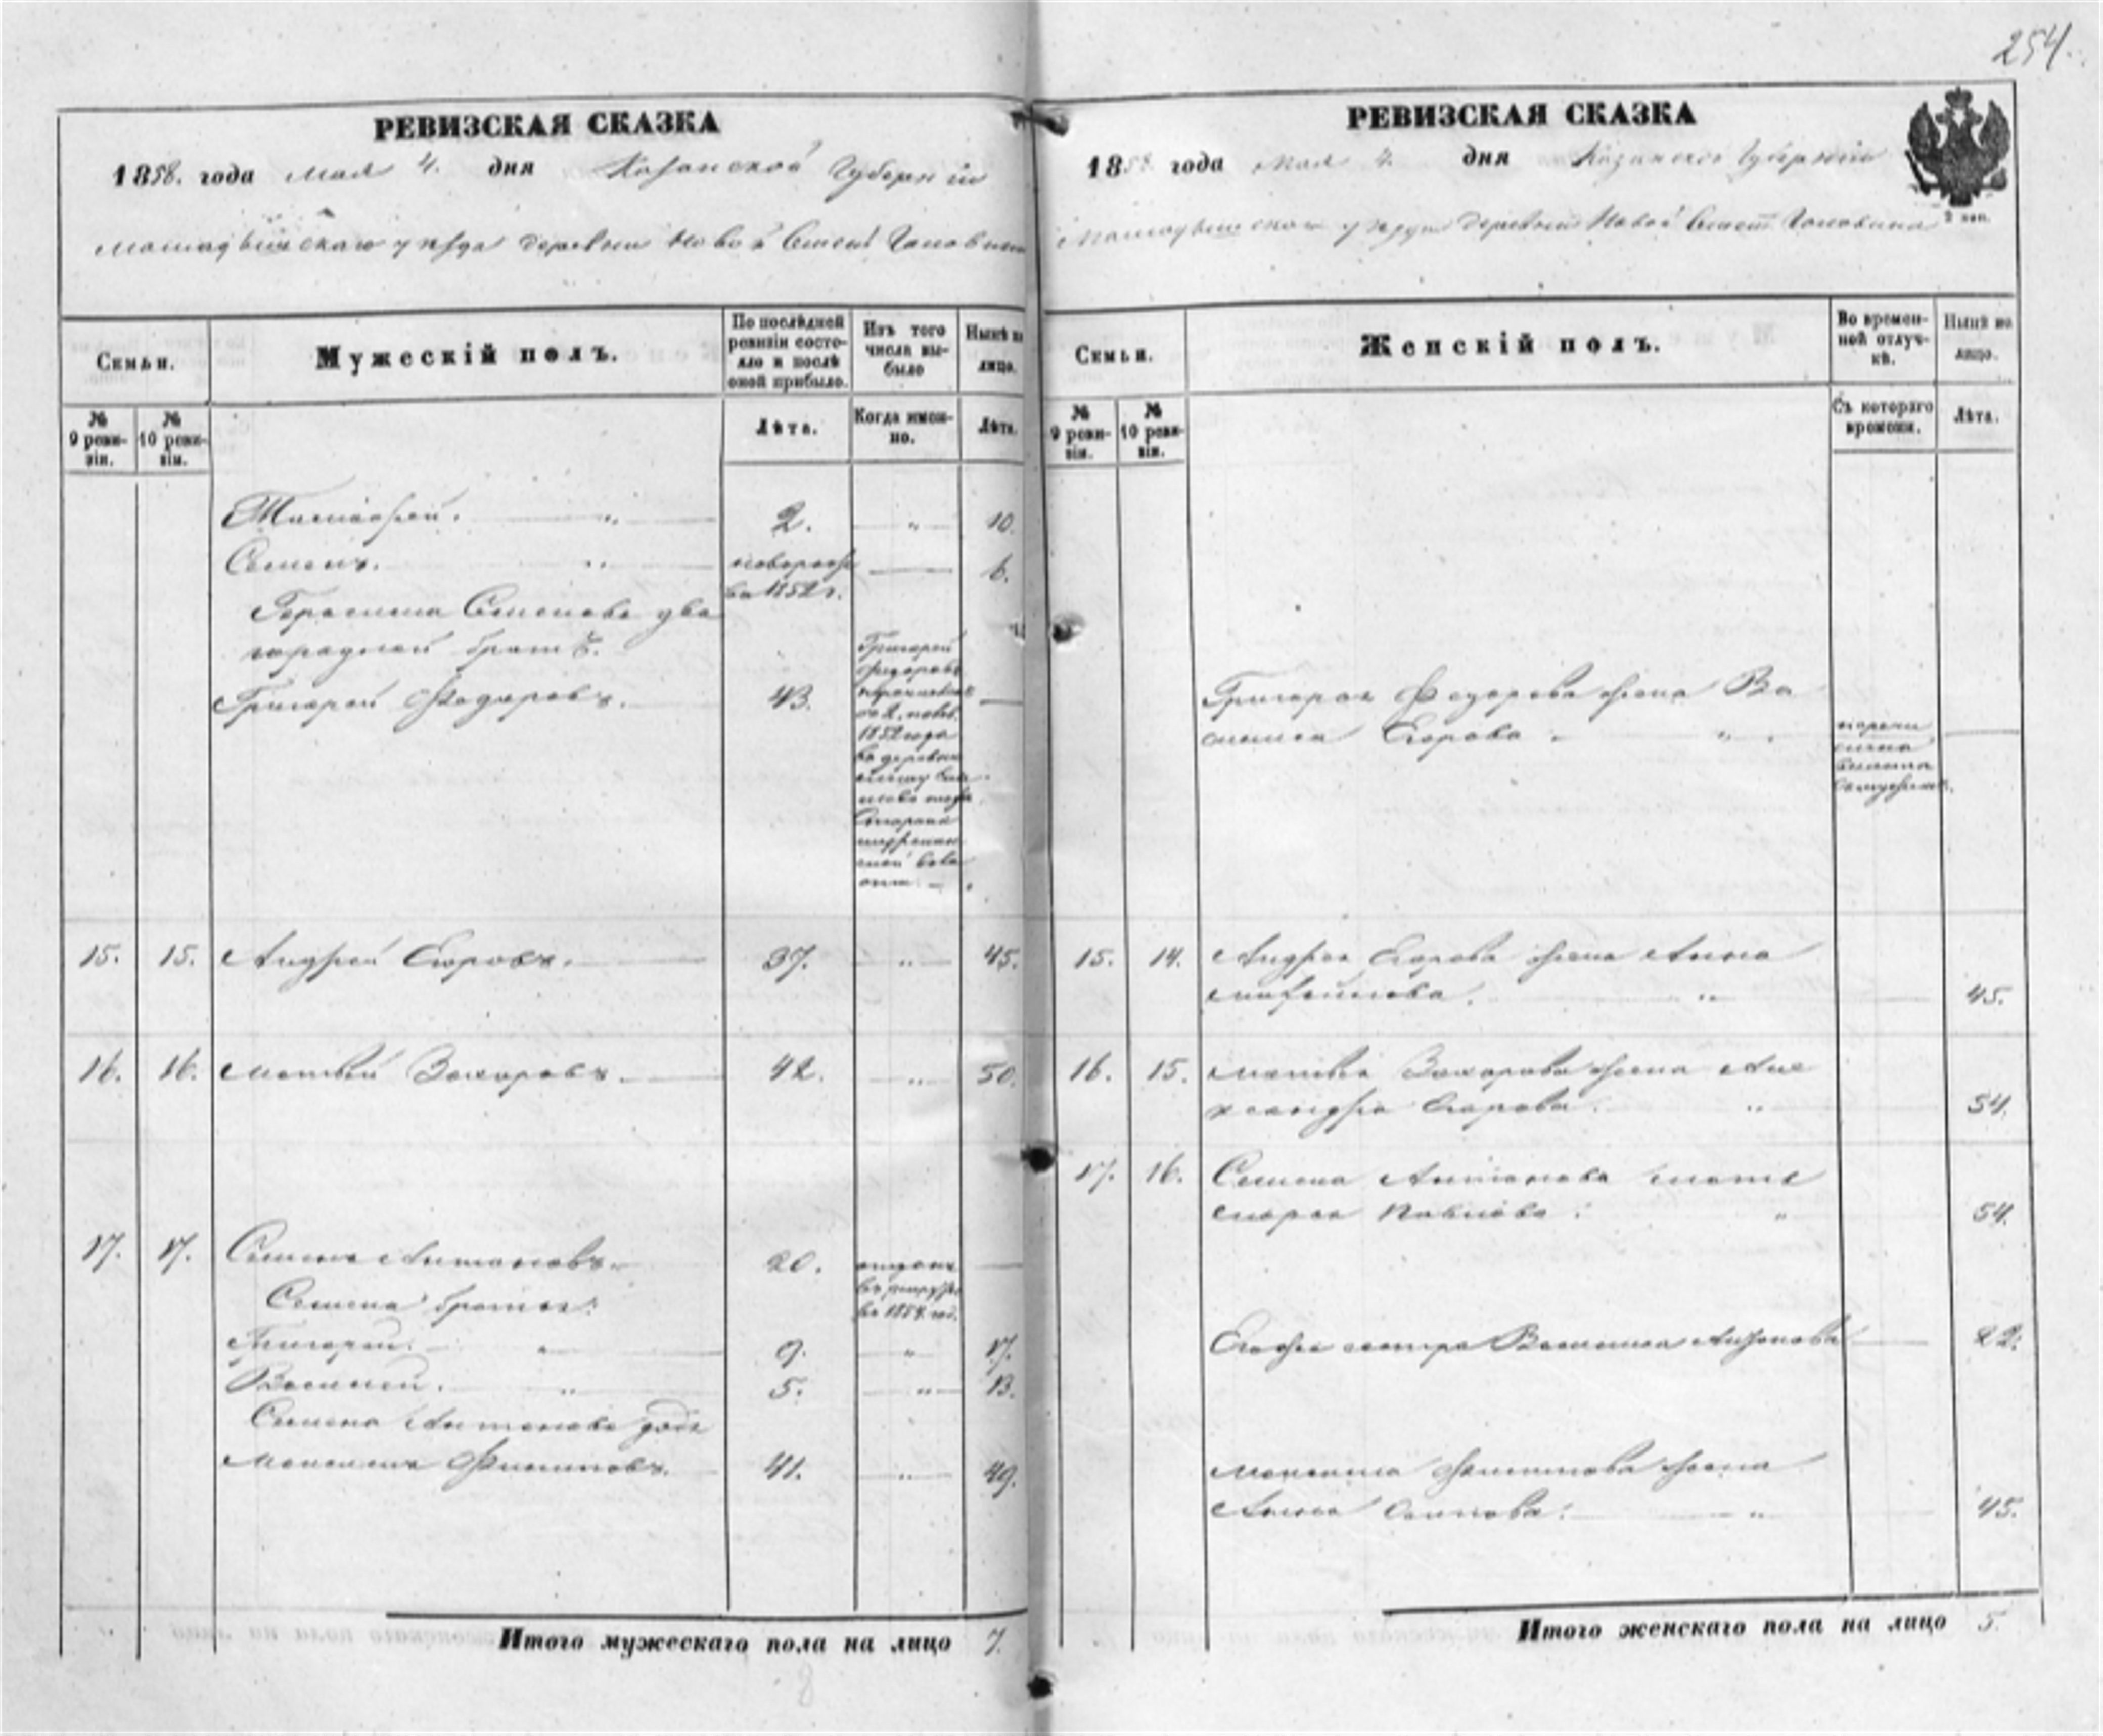 254.
РЕВИЗСКАЯ СКАЗКА
1858. года мая 4. дня Казанской Губерніи
Мамадышскаго уѣзда деревни Новой
Семьи.
№ 9 ревизіи.
№ 10 ревизіи.
Мужескій полъ.
По послѣдней ревизіи состояло и послѣ оной прибыло.
Лѣта.
Изъ того числа выбыло
Когда именно.
Нынѣ на лицо.
Лѣта.
Тимофей. " 2. " 10.
Семенъ. " новорожд 6.
въ 1852 г.
Герасима Семенова двою
родной братъ.
Григорей Федоровъ. 43.
Григорей
Федоровъ
1852 года
въ деревню
15. 15. Андрей Егоровъ. 37. " 45.
16. 16. Матвей Захаровъ. 42. " 50.
17. 17. Семенъ Антоновъ 20. отданъ
въ рекруты
въ 1854 год.
Семена братья:
Григорей. " 9. " 17.
Василей. " 5. " 13.
Семена Антонова дядя
Максимъ Филиповъ. 41. " 49.
Итого мужескаго пола на лицо 7.
8
РЕВИЗСКАЯ СКАЗКА
2 коп.
1858. года мая 4. дня Казанской Губерніи
Мамадышскаго уѣзда деревни Новой
Семьи.
№ 9 ревизіи.
№ 10 ревизіи.
Женскій полъ.
Во временной отлучкѣ.
Съ котораго времени.
Нынѣ на лицо.
Лѣта.
Григорья Федорова жена Ва
силиса Егорова. "
перечи
слена
вместе
с мужем.
15. 14. Андрея Егорова жена Анна
Михайлова. " 45.
16. 15. Матвея Захарова жена Але
ксандра Егорова. " 54.
17. 16. Семена Антонова мать
Марья Павлова: " 54.
Егоже сестра Василиса Антонова 22.
Максима Филипова жена
Анна Осипова: " 45.
Итого женскаго пола на лицо 5.